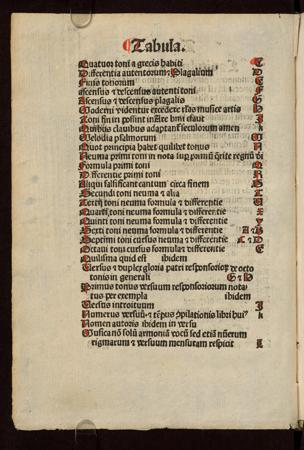 Tabula.
Quatuor toni a grecis habiti C
Differentia autentorum &amp; Plagalium D
Finis toniorum E
ascensus &amp; descensus autenti toni F
Ascensus &amp; descensus plagalis G
Moderni videntur excedere istas musice artis H
Toni fin iri possint in Are bmi cfaut I
Quibus clauibus adaptant seculorum amen k
Melodia psalmorum
Quot principia habet quilibet tonus N
Neuma primi toni in nota sup primū
Formula primi toni Q
Differentie primi toni R
Aliqui falsificant cantum circa finem S
Secundi toni neuma &amp; alia T
Tertij toni neuma formula &amp; differentie U
Quarti toni neuma formula &amp; differentie X
Quinti toni neuma formula &amp; differentie y
Sexti toni neuma formula &amp; differentie A &amp; B
Septimi toni cursus formula &amp; differentie C &amp; D
Octaui toni cursus formula &amp; differentie E
Quilisma quid est ibidem
Versus &amp; duplex gloria patri responsorioꝝ de octo
tonis in generali G &amp; H
Primus tonus versuum responsoriorum nota
tus per exempla ibidem
Versus introituum I
Numerus versuū &amp; tēpus ꝯpilationis libri hui⁹ k
Nomen autoris ibidem in versu
Musica nō solū armoniā vocū sed etiā nūerum
rigmarum &amp; versuum mensuram respicit L